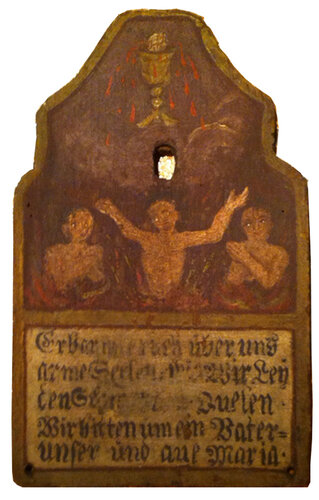 Erbarmet euch über uns
arme Seelen Wir Ley
den Quelen.
Wir bitten um ein Vater=
unser und aue Maria.